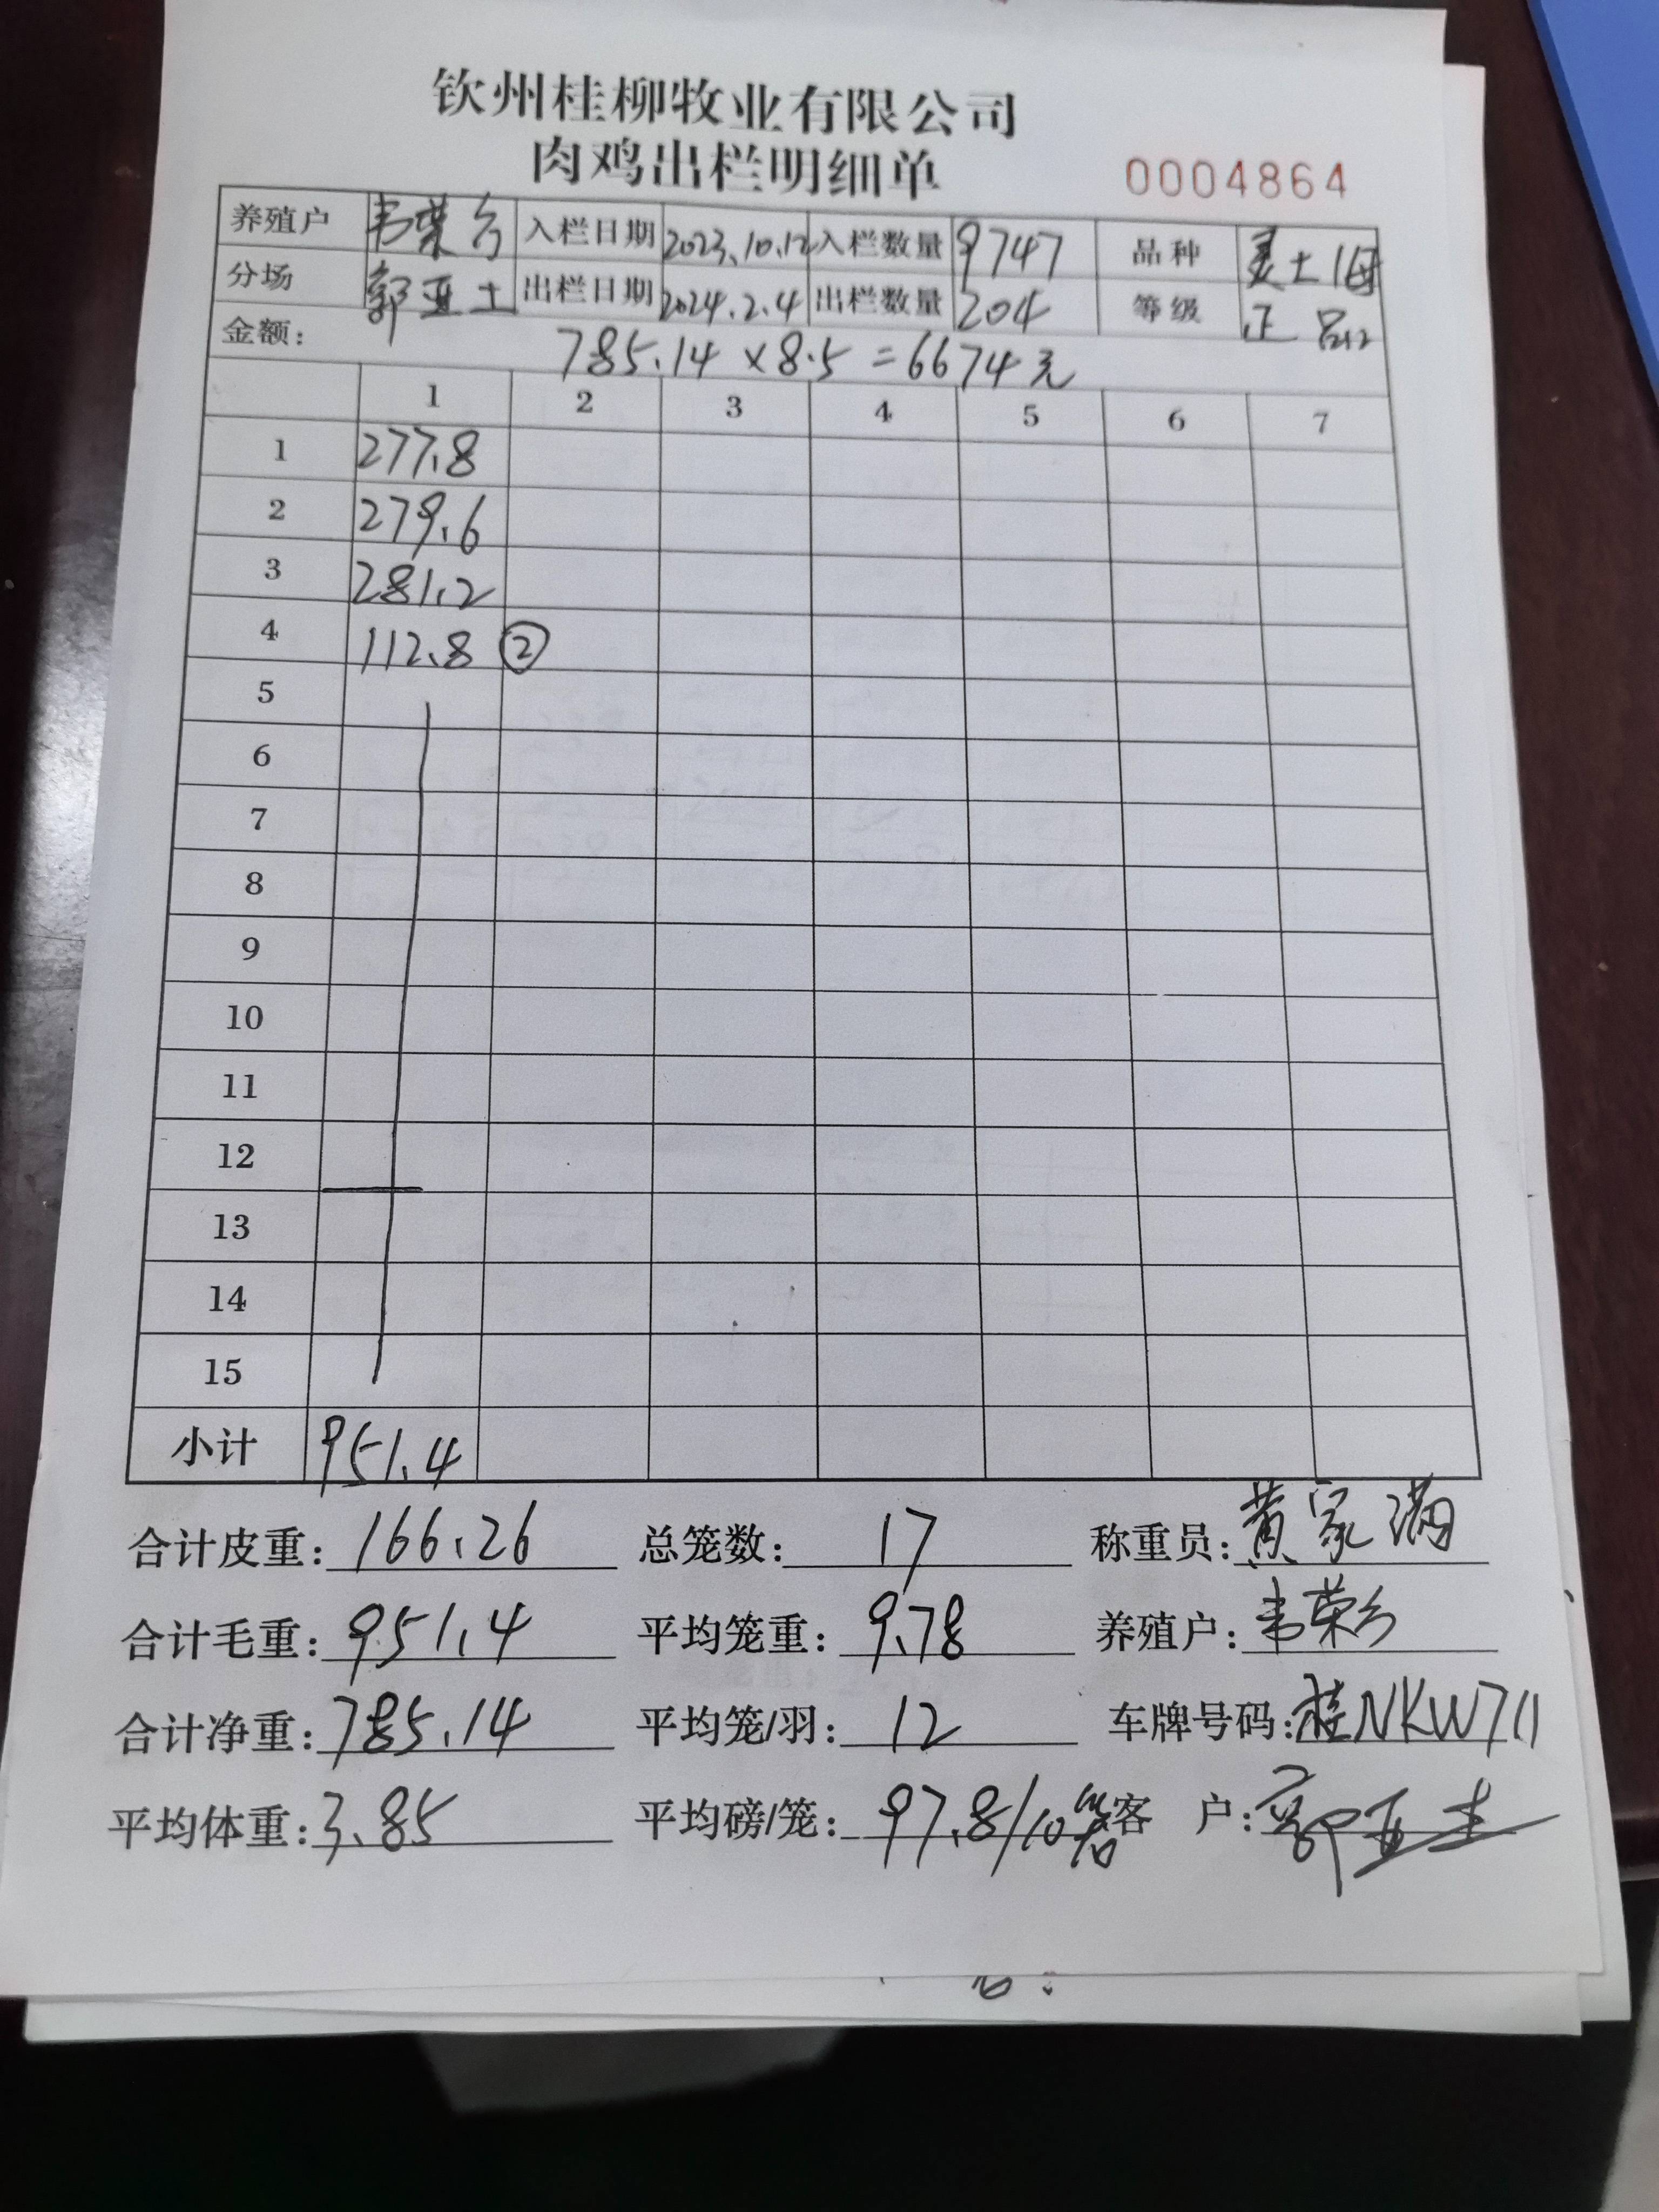 钦州桂柳牧业有限公司
肉鸡出栏明细单
0004864
养殖户 韦荣 入栏日期 2023.10.12 入栏数量 9747 品种 土
分场 郭亚 出栏日期 2024.2.4 出栏数量 204 等级 正品
金额: 785.14×8.5=6674元
1 2 3 4 5 6 7
1 277.8
2 279.6
3 281.2
4 112.8 ②
5
6
7
8
9
10
11
12
13
14
15
小计 951.4
合计皮重: 166.26 总笼数: 17 称重员: 黄家满
合计毛重: 951.4 平均笼重: 9.78 养殖户: 韦荣
合计净重: 785.14 平均笼/羽: 12 车牌号码: 桂NKW711
平均体重: 3.85 平均磅/笼: 97.8/10 客户: 郭亚